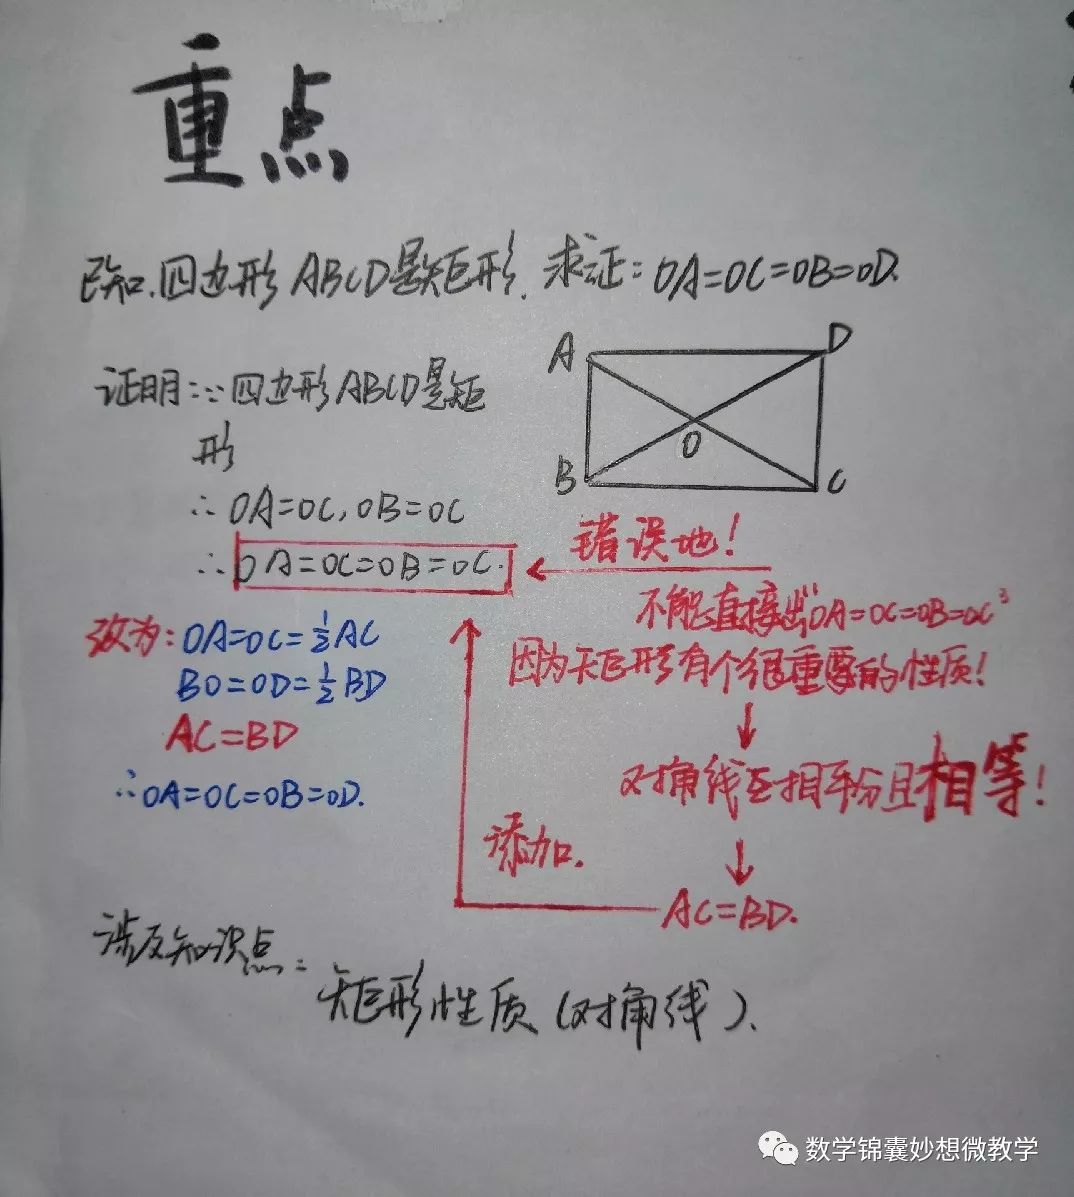 重点
已知.四边形ABCD是矩形.求证:OA=OC=OB=OD.
A
D
B
C
O
证明:∵四边形ABCD是矩
形
∴OA=OC,OB=OC
∴OA=OC=OB=OC.
错误地!
不能直接出"OA=OC=OB=OC"
因为矩形有个很重要的性质!
对角线互相平分且相等!
AC=BD.
添加.
改为:OA=OC=½AC
BO=OD=½BD
AC=BD
∴OA=OC=OB=OD.
涉及知识点:
矩形性质(对角线).
数学锦囊妙想微教学